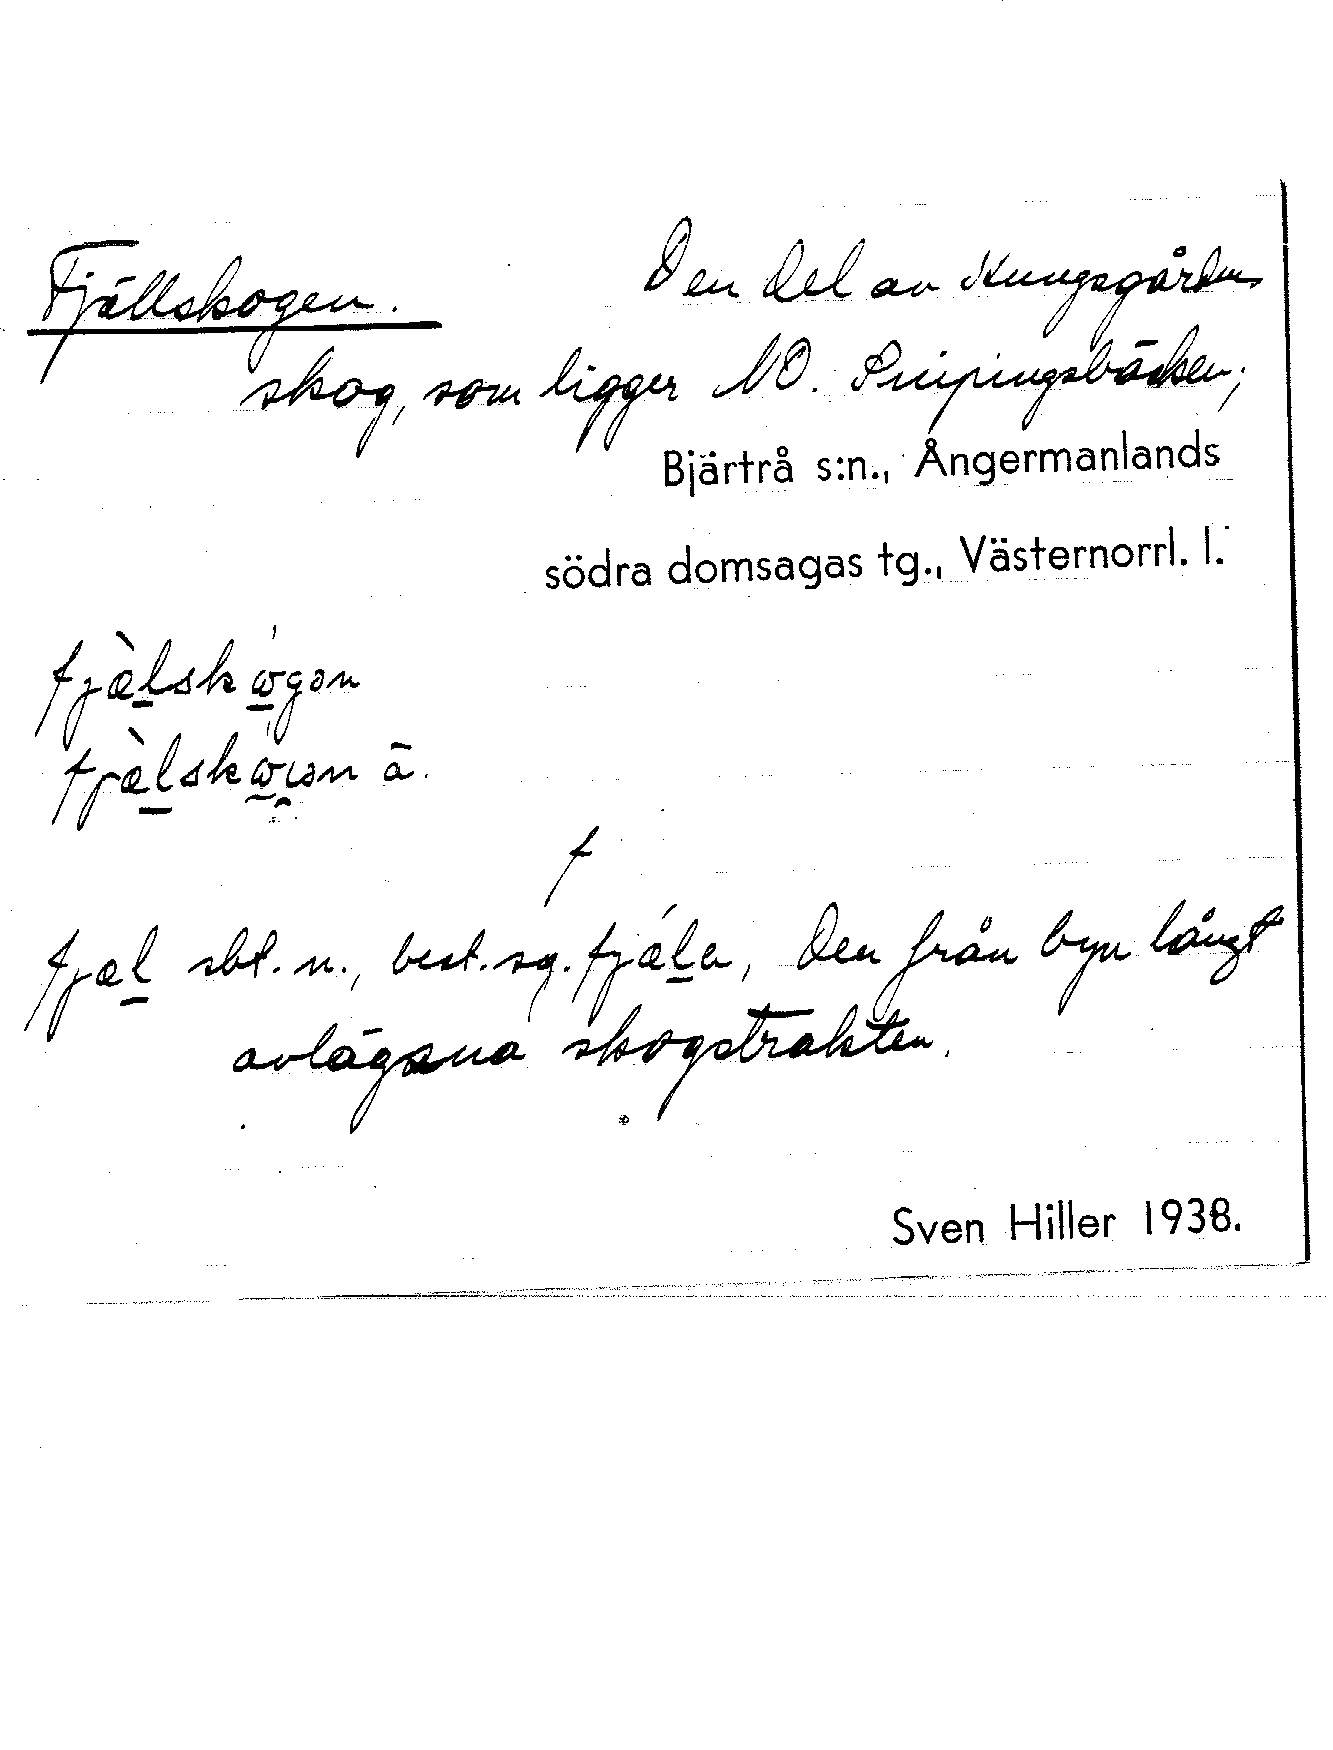 Fjällskogen. Den del av Kungsgårdens
skog, som ligger NO. Snipingsbäcken;
Bjärtrå s:n., Ångermanlands
södra domsagas tg., Västernorrl. l.
fjæ̀lskωgən
fjæ̀lskωıən ä.
f
fjæl sbt. n., best. sg. fjǽla, den från byn långt
avlägsna skogstrakten.
Sven Hiller 1938.